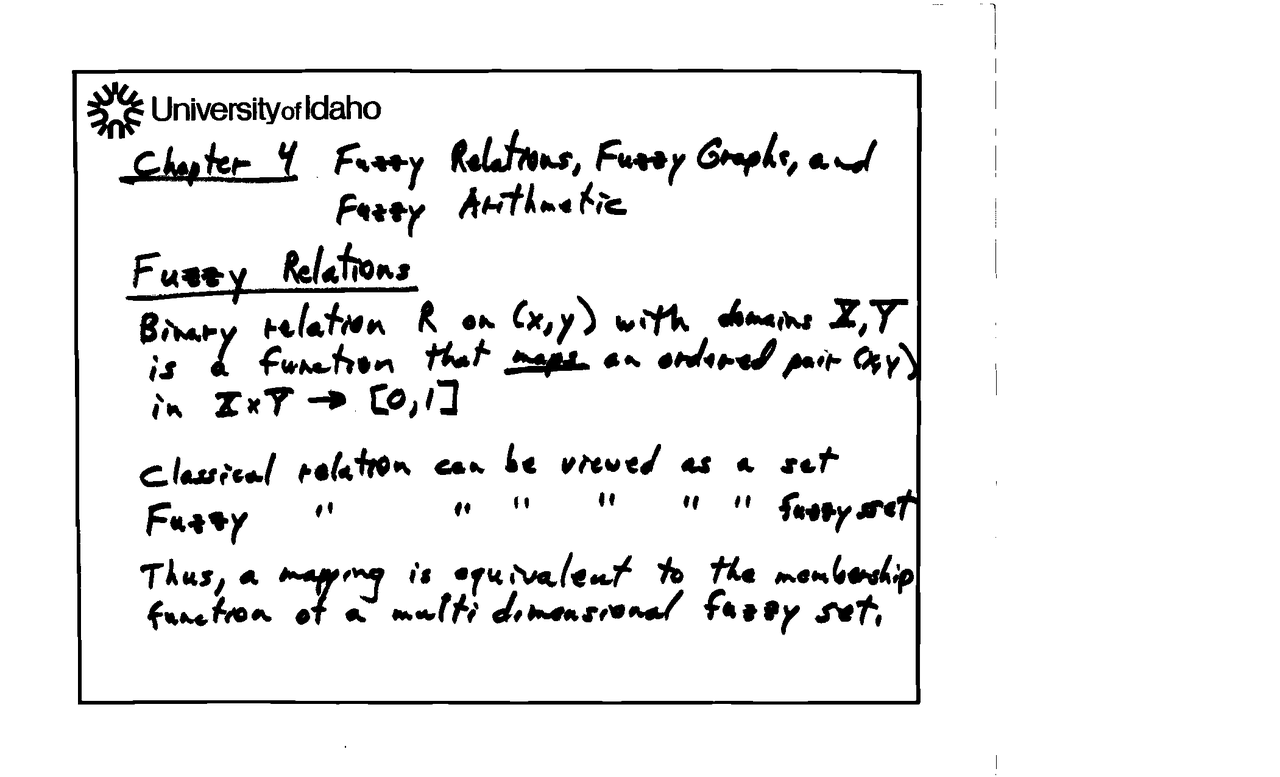 University of Idaho
Chapter 4 Fuzzy Relations, Fuzzy Graphs, and
Fuzzy Arithmetic
Fuzzy Relations
Binary relation R on (x,y) with domains X,Y
is a function that maps an ordered pair (x,y)
in X×Y → [0,1]
Classical relation can be viewed as a set
Fuzzy " " " " " " fuzzy set
Thus, a mapping is equivalent to the membership
function of a multi dimensional fuzzy set.